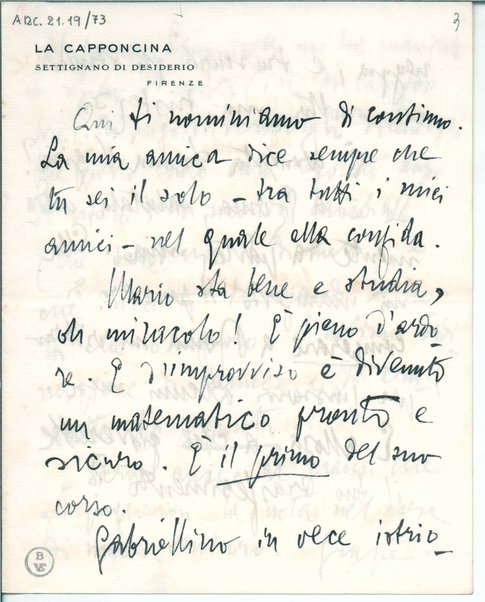 ARC. 21.19/73
3
LA CAPPONCINA
SETTIGNANO DI DESIDERIO
FIRENZE
Qui ti nominiamo di continuo.
La mia amica dice sempre che
tu sei il solo – tra tutti i miei
amici – nel quale ella confida.
Mario sta bene e studia,
oh miracolo! È pieno d'ardo-
re. E d'improvviso è divenuto
un matematico pronto e
sicuro. È il primo del suo
corso.
Gabriellino in vece istrio-
B
VE